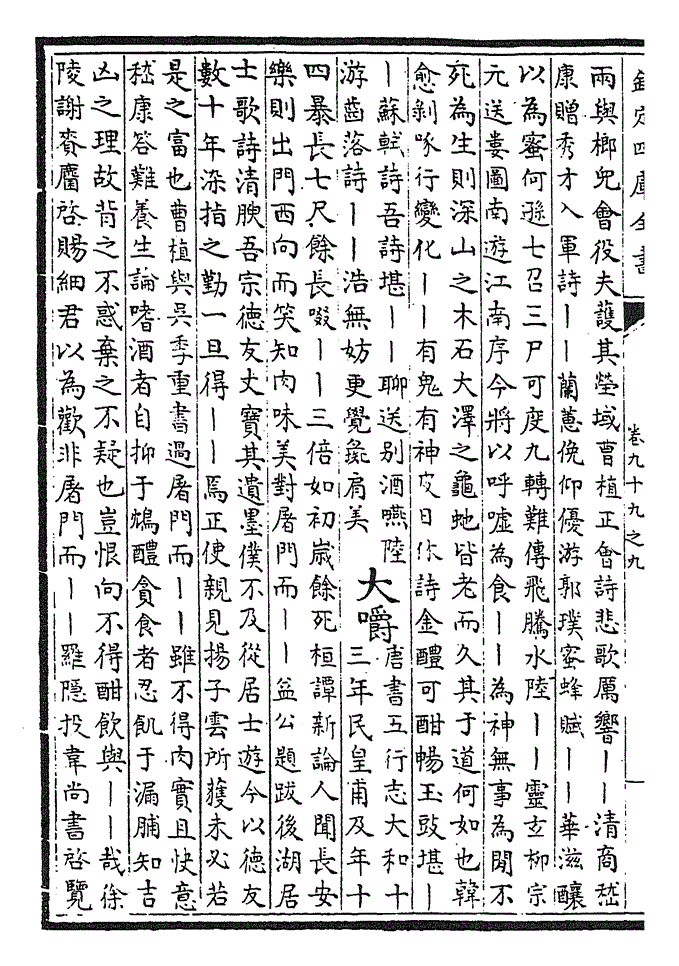 欽定四庫全書
卷九十九之九
一
兩與榔兒會役夫䕶其塋域曹植正會詩悲歌厲響丨丨清商嵇
康贈秀才入軍詩丨丨蘭蕙俛仰優游郭璞蜜蜂賦丨丨華滋釀
以為蜜何遜七召三尸可度九轉難傳飛騰水陸丨丨靈玄柳宗
元送婁圖南遊江南序今將以呼噓為食丨丨為神無事為閒不
死為生則深山之木石大澤之龜虵皆老而久其于道何如也韓
愈剝啄行變化丨丨有鬼有神皮日休詩金醴可酣暢玉豉堪丨
丨蘇軾詩吾詩堪丨丨聊送别酒嚥陸
游齒落詩丨丨浩無妨更覺彘肩美
大嚼
唐書五行志大和十
三年民皇甫及年十
四暴長七尺餘長啜丨丨三倍如初嵗餘死桓譚新論人聞長安
樂則出門西向而笑知肉味美對屠門而丨丨益公題跋後湖居
士歌詩清腴吾宗德友丈寶其遺墨僕不及從居士遊今以德友
數十年深指之勤一旦得丨丨焉正使親見揚子雲所獲未必若
是之富也曹植與吳季重書過屠門而丨丨雖不得肉實且快意
嵇康答難養生論嗜酒者自抑于鴆醴貪食者忍飢于漏脯知吉
凶之理故背之不惑棄之不疑也豈恨向不得酣飲與丨丨哉徐
陵謝賚麞啓賜細君以為歡非屠門而丨丨羅隱投韋尚書啓覽